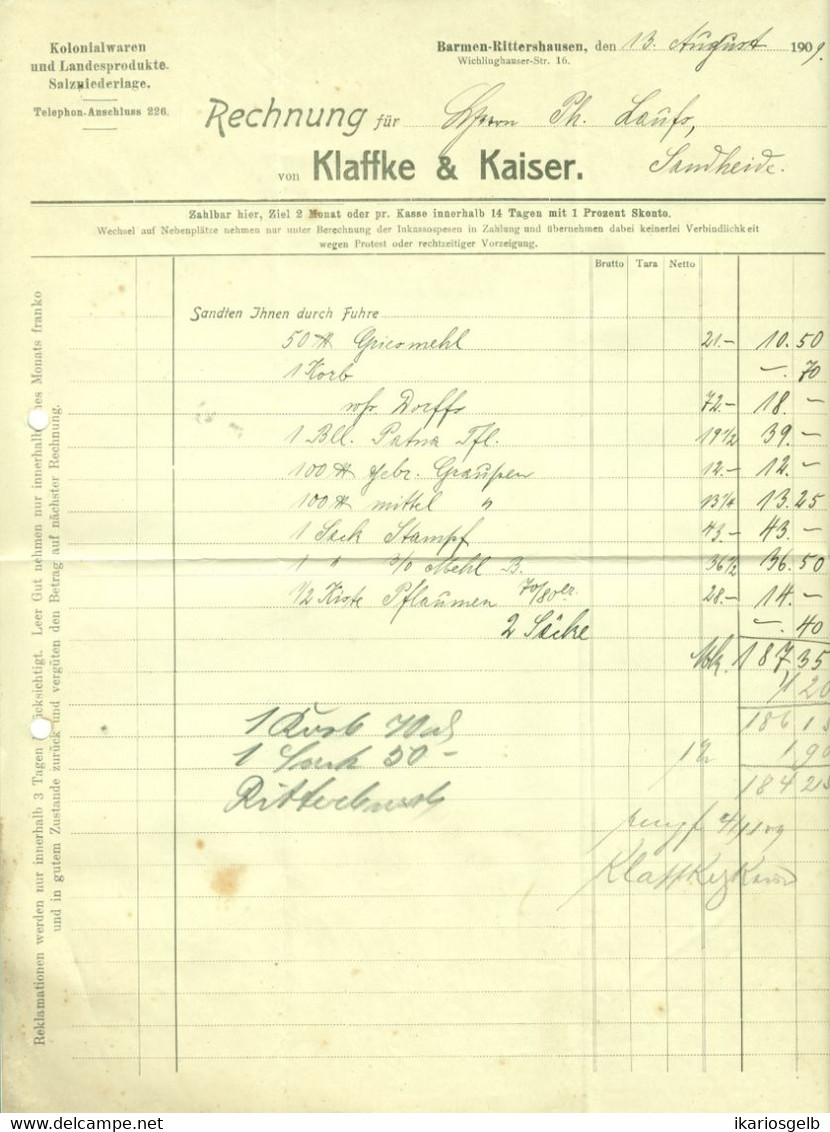 Kolonialwaren
und Landesprodukte.
Salzniederlage.
Telephon-Anschluss 226.
Barmen-Rittershausen, den 13. August 1909.
Wichlinghauser-Str. 16.
Rechnung für Herrn Ph. Laufs,
von Klaffke & Kaiser. Sandheide.
Zahlbar hier, Ziel 2 Monat oder pr. Kasse innerhalb 14 Tagen mit 1 Prozent Skonto.
Wechsel auf Nebenplätze nehmen nur unter Berechnung der Inkassospesen in Zahlung und übernehmen dabei keinerlei Verbindlichkeit
wegen Protest oder rechtzeitiger Vorzeigung.
Brutto Tara Netto
Sandten Ihnen durch Fuhre
50 ℔ Griesmehl 21.– 10.50
1 Korb –.70
72.– 18.–
1 Bll. Patna Tfl. 19½ 39.–
100 ℔ gebr. Graupen 12.– 12.–
100 ℔ mittel " 13¼ 13.25
1 Sack Stampf 43.– 43.–
1 " 3/0 Mehl B. 36½ 36.50
1/2 Kiste Pflaumen 70/80er 28.– 14.–
2 Säcke –.40
Mk. 187,35
1 20
186 15
1 90
184 25
1 Korb 70
1 Sack 50 –
Klaffke & Kaiser
Reklamationen werden nur innerhalb 3 Tagen berücksichtigt. Leer Gut nehmen nur innerhalb des Monats franko
und in gutem Zustande zurück und vergüten den Betrag auf nächster Rechnung.
www.delcampe.net
ikariosgelb